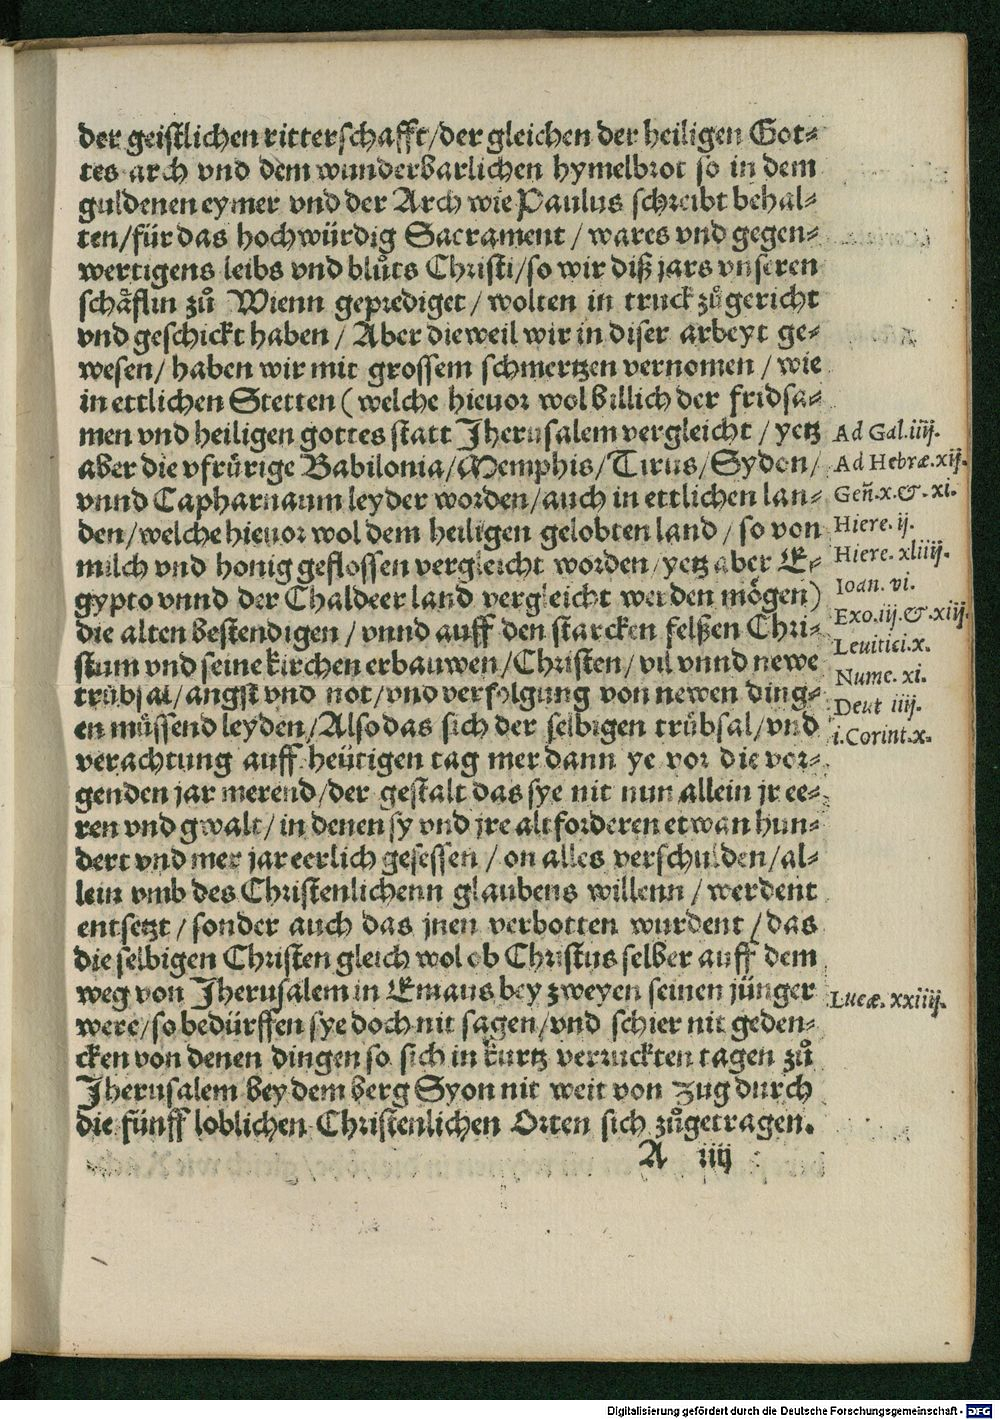 der geistlichen ritterschafft/der gleichen der heiligen Got⸗
tes arch vnd dem wunderbarlichen hymelbrot so in dem
guldenen eymer vnd der Arch wie Paulus schreibt behal⸗
ten/für das hochwürdig Sacrament / wares vnd gegen⸗
wertigens leibs vnd blůts Christi/so wir diß jars vnseren
schäflin zů Wienn geprediget / wolten in truck zůgericht
vnd geschickt haben / Aber dieweil wir in diser arbeyt ge⸗
wesen/ haben wir mit grossem schmertzen vernomen / wie
in ettlichen Stetten (welche hieuor wol billich der fridsa⸗
men vnd heiligen gottes statt Jherusalem vergleicht / yetz
aber die vfrürige Babilonia/Memphis/Tirus/Sydon/
vnnd Capharnaum leyder worden/auch in ettlichen lan⸗
den/welche hieuor wol dem heiligen gelobten land / so von
milch vnd honig geflossen vergleicht worden/yetz aber E⸗
gypto vnnd der Chaldeer land vergleicht werden mögen)
die alten bestendigen / vnnd auff den starcken felßen Chri⸗
stum vnd seine kirchen erbauwen/Christen/ vil vnnd newe
trübsal/angst vnd not/vnd verfolgung von newen ding⸗
en müssend leyden/Also das sich der selbigen trübsal/vnd
verachtung auff heütigen tag mer dann ye vor die vor⸗
genden jar merend/der gestalt das sye nit nun allein jr ee⸗
ren vnd gwalt/ in denen sy vnd jre altforderen etwan hun⸗
dert vnd mer jar eerlich gesessen / on alles verschulden/al⸗
lein vmb des Christenlichenn glaubens willenn / werdent
entsetzt / sonder auch das jnen verbotten wurdent / das
die selbigen Christen gleich wol ob Christus selber auff dem
weg von Jherusalem in Emaus bey zweyen seinen jünger
were/so bedürffen sye doch nit sagen/vnd schier nit geden⸗
cken von denen dingen so sich in kurtz verruckten tagen zů
Jherusalem bey dem berg Syon nit weit von Zug durch
die fünff loblichen Christenlichen Orten sich zůgetragen.
A iiij
Ad Gal.iiij.
Ad Hebræ.xij.
Geñ.x.&.xi.
Hiere.ij.
Hiere.xliiij.
Ioan.vi.
Exo.iij.&.xiij.
Leuitici.x.
Nume.xi.
Deut iiij.
i.Corint.x.
Lucæ.xxiiij.
Digitalisierung gefördert durch die Deutsche Forschungsgemeinschaft - DFG